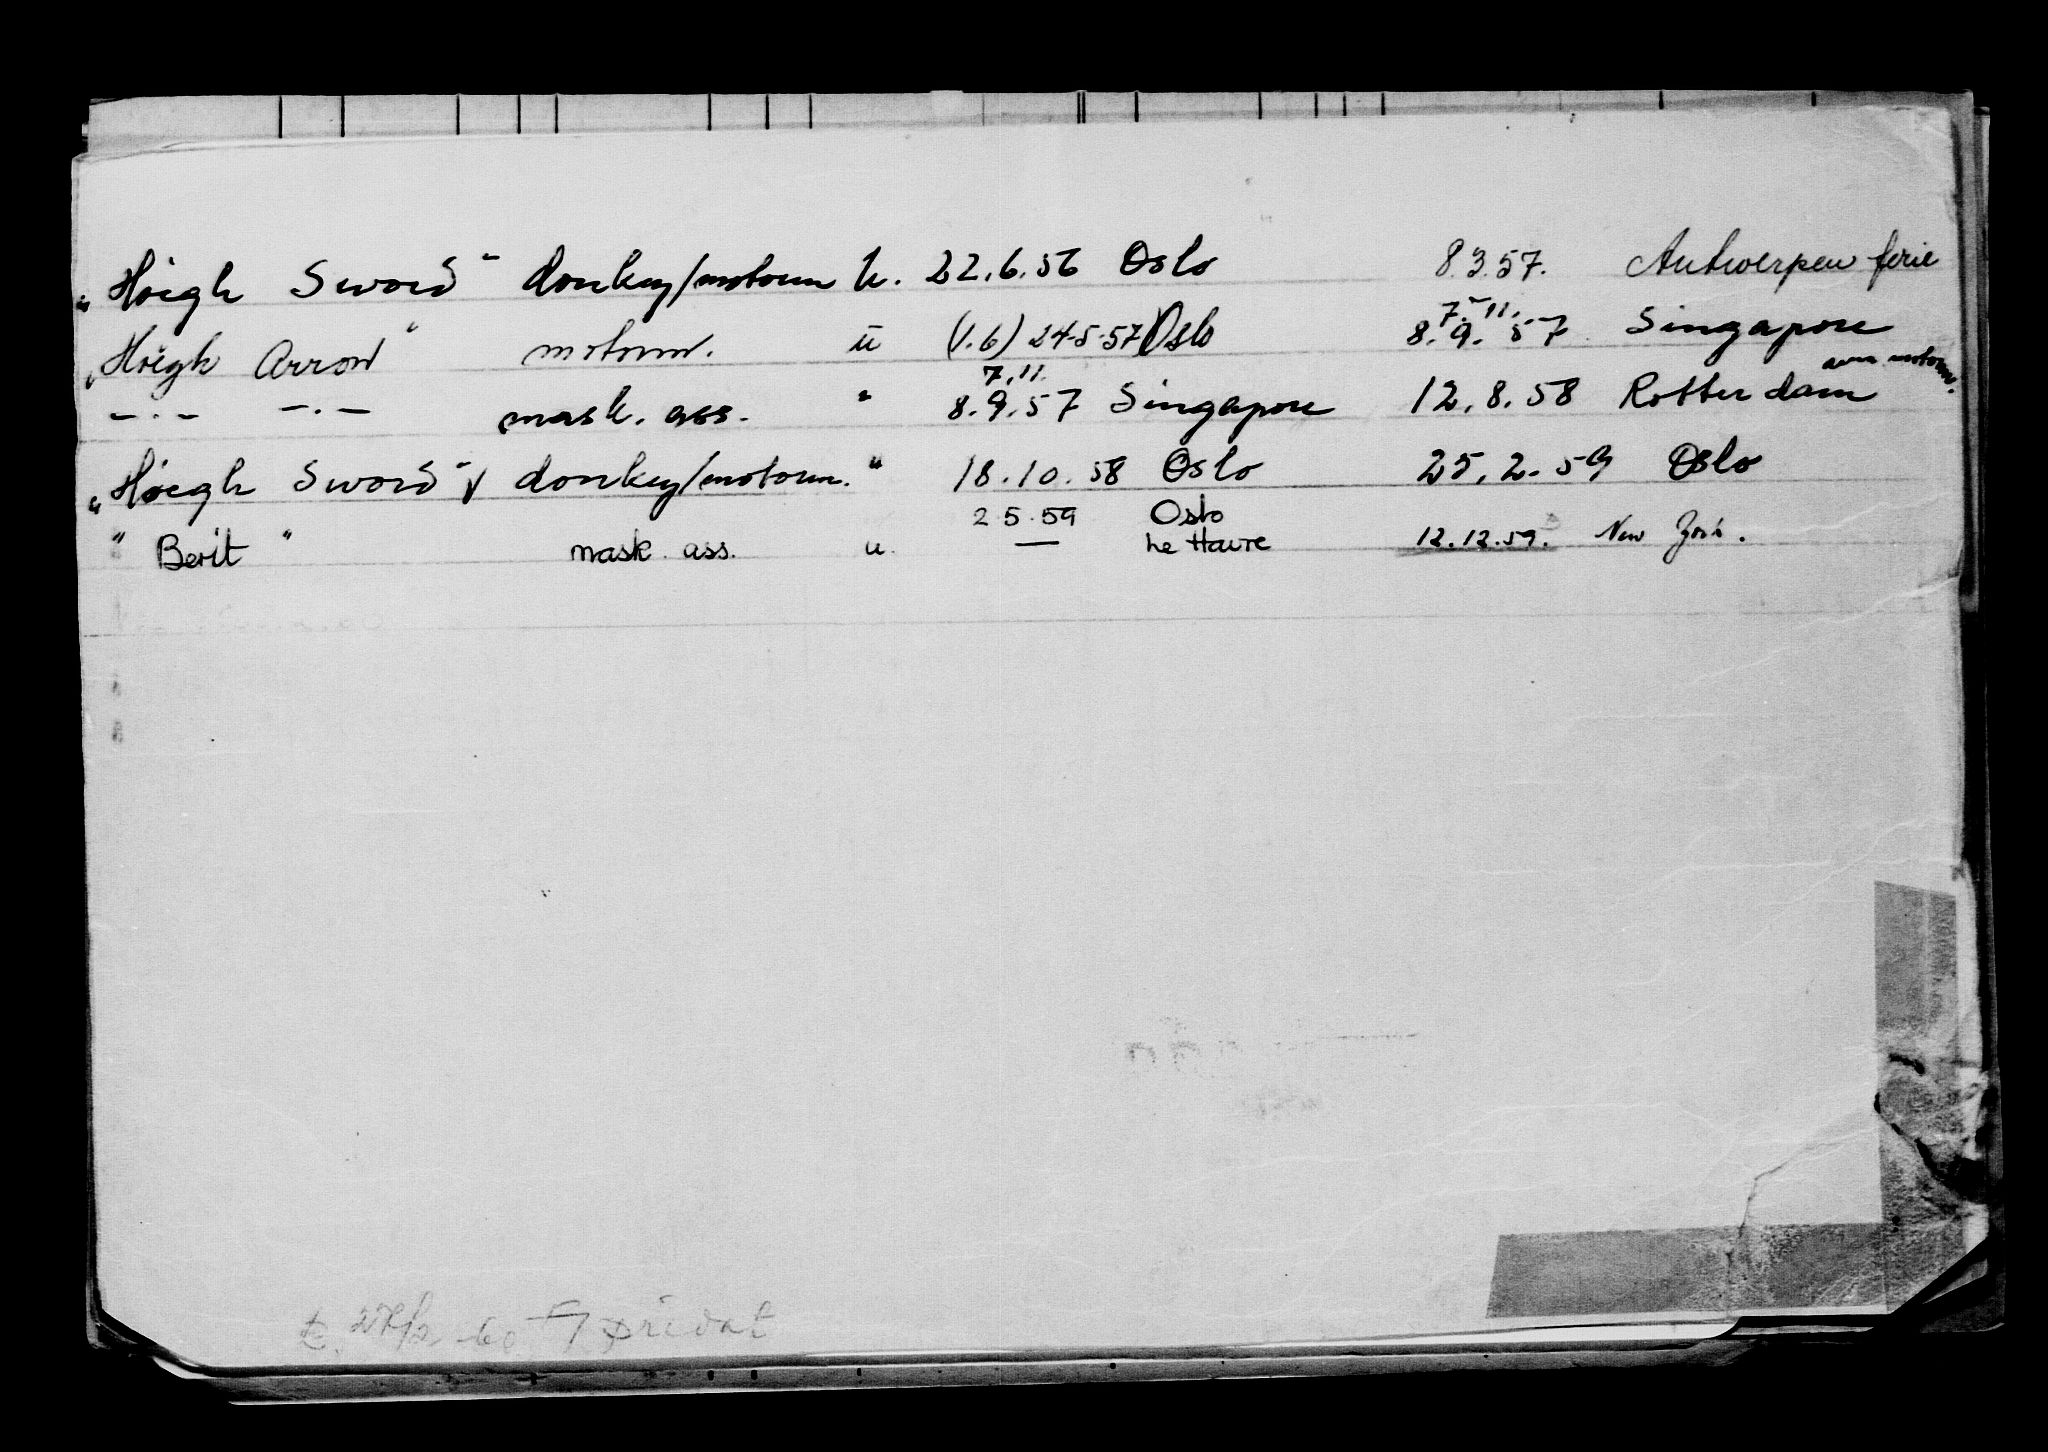 "Höegh Sword" donkey/motorm u. 22.6.56 Oslo 8.3.57. Antwerpen ferie
"Höegh Arrow" motorm. u (1.6) 24-5-57 Oslo 7.-11. 8.9.57 Singapore
—.— —.— mask. ass. " 7.11. 8.9.57 Singapore 12.8.58 Rotterdam som motorm.
"Höegh Sword" donkey/motorm. " 18.10.58 Oslo 25.2.59 Oslo
2.5.59 Oslo
"Berit" mask. ass. u. — Le Havre 12.12.59. New York.
60 privat